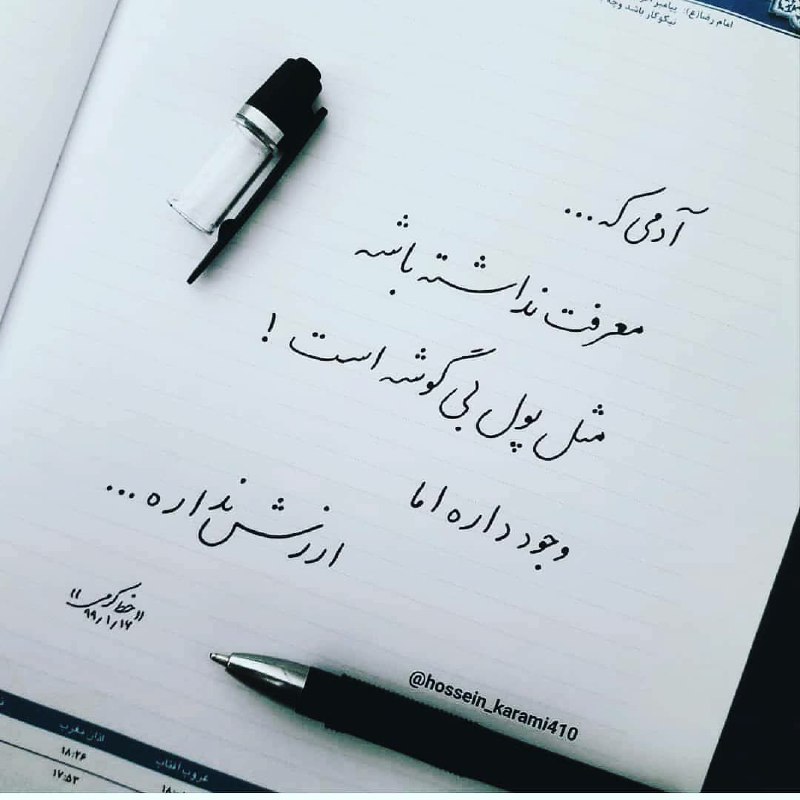 امام رضا(ع):
نیکوکار باشد و چه
آدمی که ...
معرفت نداشته باشه
مثل پول بی گوشه است !
وجود داره اما
ارزش نداره ...
"خط کرمی"
۹۹/۱/۱۶
@hossein_karami410
اذان مغرب
غروب آفتاب
۱۸:۲۶
۱۷:۵۳